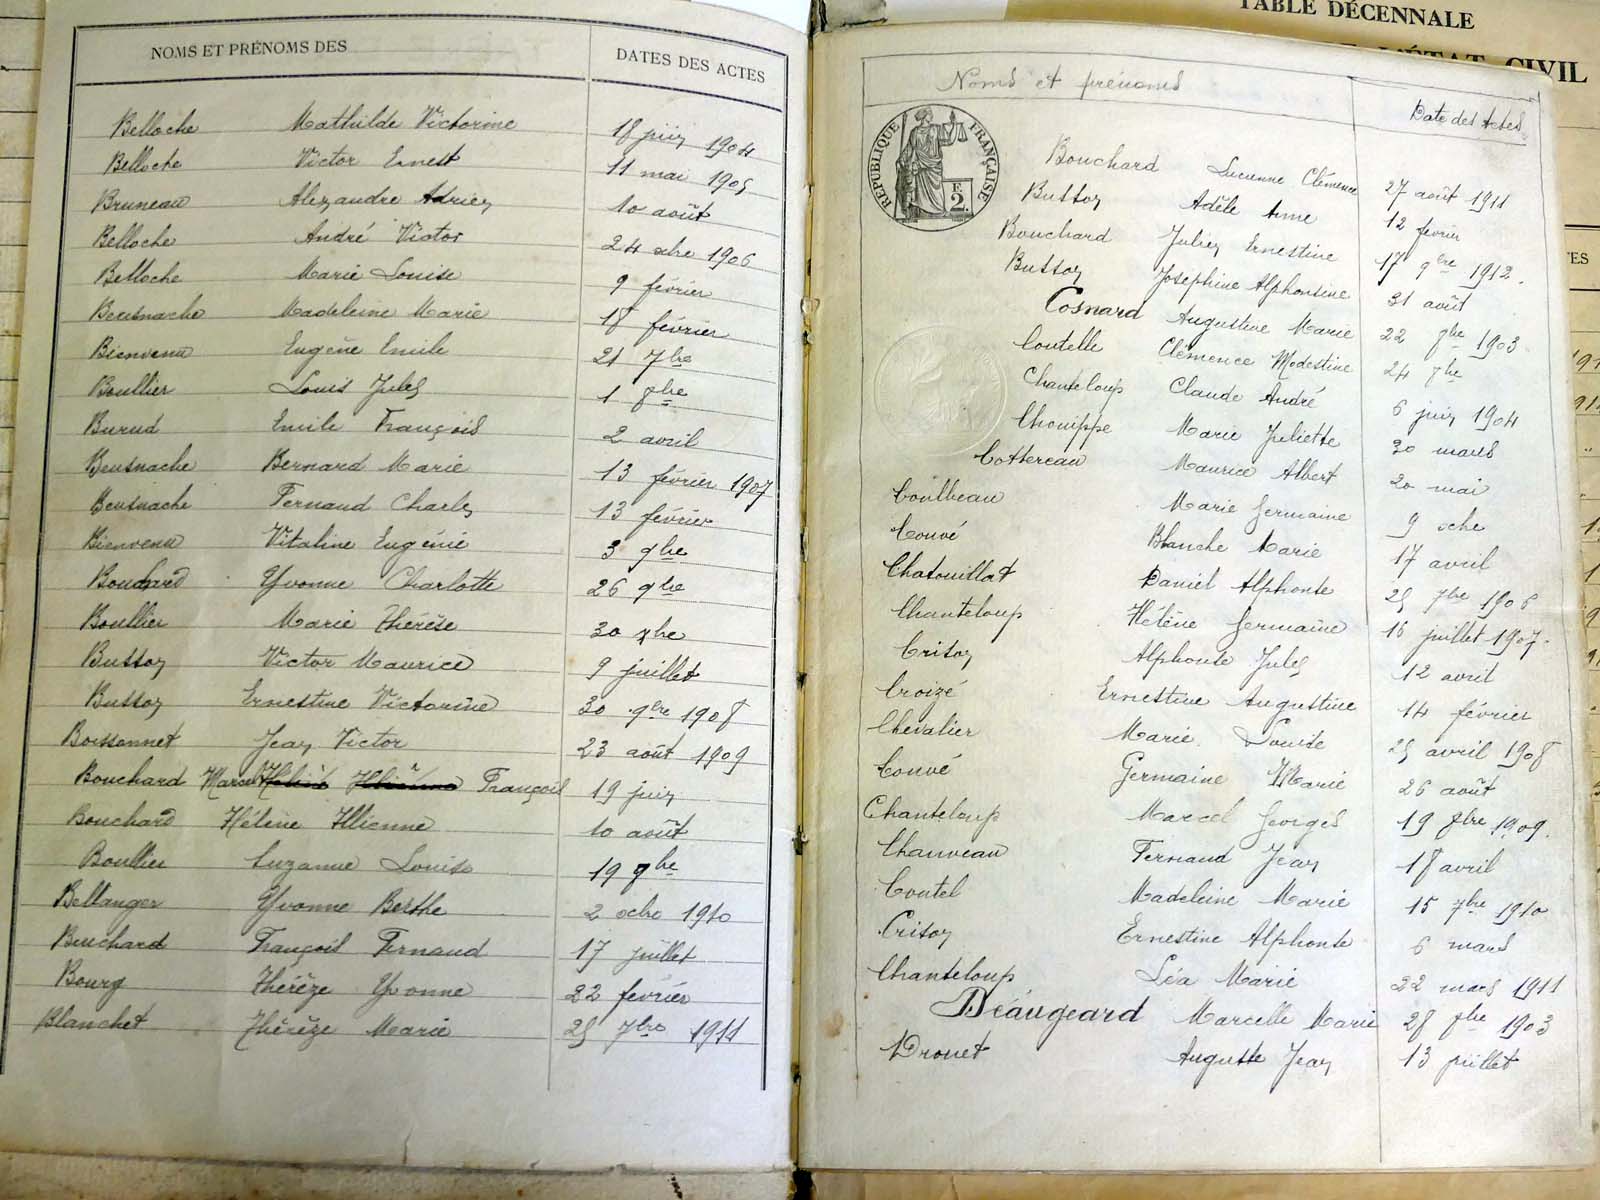 NOMS ET PRÉNOMS DES DATES DES ACTES
Belloche Mathilde Victorine 18 juin 1904
Belloche Victor Ernest 11 mai 1905
Bruneau Alexandre Adrien 10 août
Belloche André Victor 24 xbre 1906
Belloche Marie Louise 9 février
Beusnache Madeleine Marie 18 février
Bienvenu Eugène Emile 21 7bre
Boullier Louis Jules 1 8bre
Burud Emile François 2 avril
Beusnache Bernard Marie 13 février 1907
Beusnache Fernand Charles 13 février
Bienvenu Vitaline Eugénie 3 9bre
Bouchard Yvonne Charlotte 26 9bre
Boullier Marie Thérèse 30 xbre
Busson Victor Maurice 9 juillet
Busson Ernestine Victorine 30 9bre 1908
Boissonnet Jean Victor 23 août 1909
Bouchard Marcel François 19 juin
Bouchard Hélène 10 août
Boullier Suzanne Louise 19 9bre
Bellanger Yvonne Berthe 2 octre 1910
Bouchard François Fernand 17 juillet
Bourg Thérèze Yvonne 22 février
Blanchet Thérèze Marie 25 7bre 1911
TABLE DÉCENNALE
L'ÉTAT CIVIL
Noms et prénoms Date des Actes
RÉPUBLIQUE FRANÇAISE
F.
2.
Bouchard Lucienne Clémence 27 août 1911
Busson Adèle Anne 12 février
Bouchard Julien Ernestine 17 9bre 1912.
Busson Joséphine Alphonsine 31 août
Cosnard Augustine Marie 22 8bre 1903
Coutelle Clémence Modestine 24 7bre
Chanteloup Claude André 6 juin 1904
Chouippe Marie Juliette 30 mars
Cottereau Maurice Albert 20 mai
Coulbeau Marie Germaine 9 octre
Couvé Blanche Marie 17 avril
Chatouillat Daniel Alphonse 25 7bre 1906
Chanteloup Hélène Germaine 16 juillet 1907.
Crison Alphonse Jules 12 avril
Croizé Ernestine Augustine 14 février
Chevalier Marie Louise 25 avril 1908
Couvé Germaine Marie 26 août
Chanteloup Marcel Georges 19 8bre 1909.
Chauveau Fernand Jean 18 avril
Coutel Madeleine Marie 15 7bre 1910
Crison Ernestine Alphonse 6 mars
Chanteloup Léa Marie 22 mars 1911
Déaugeard Marcelle Marie 28 8bre 1903
Drouet Auguste Jean 13 juillet